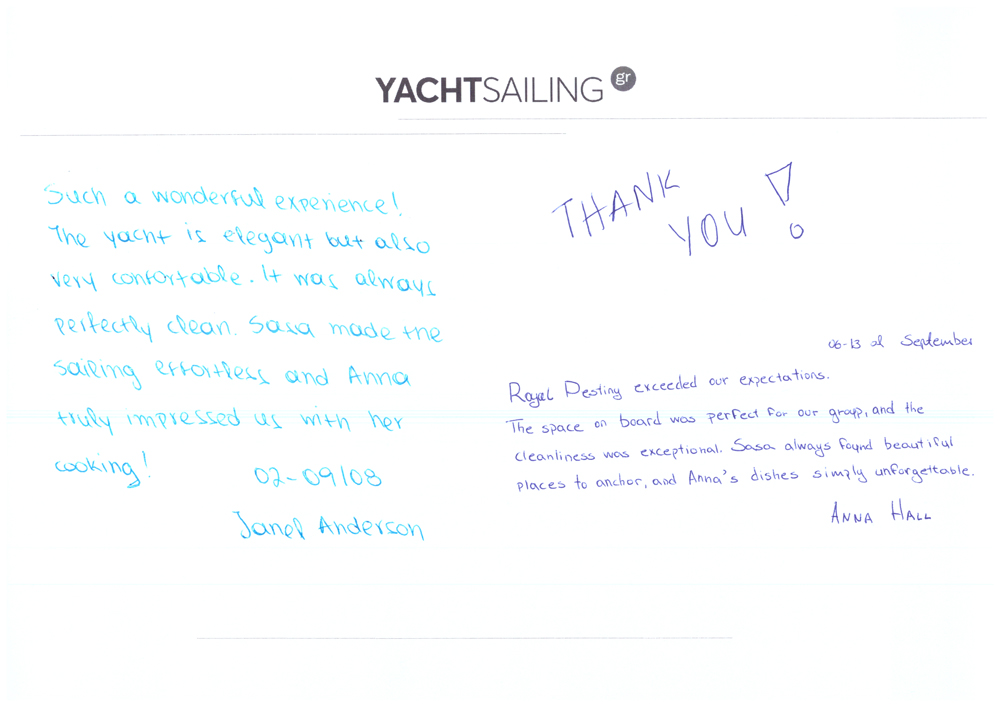 YACHTSAILING gr
Such a wonderful experience!
The yacht is elegant but also
very confortable. It was always
perfectly clean. Sasa made the
sailing effortless and Anna
truly impressed us with her
cooking!
02-09/08
Janel Anderson
THANK
YOU!
06-13 of September
Royal Destiny exceeded our expectations.
The space on board was perfect for our group, and the
cleanliness was exceptional. Sasa always found beautiful
places to anchor, and Anna's dishes simply unforgettable.
ANNA HALL